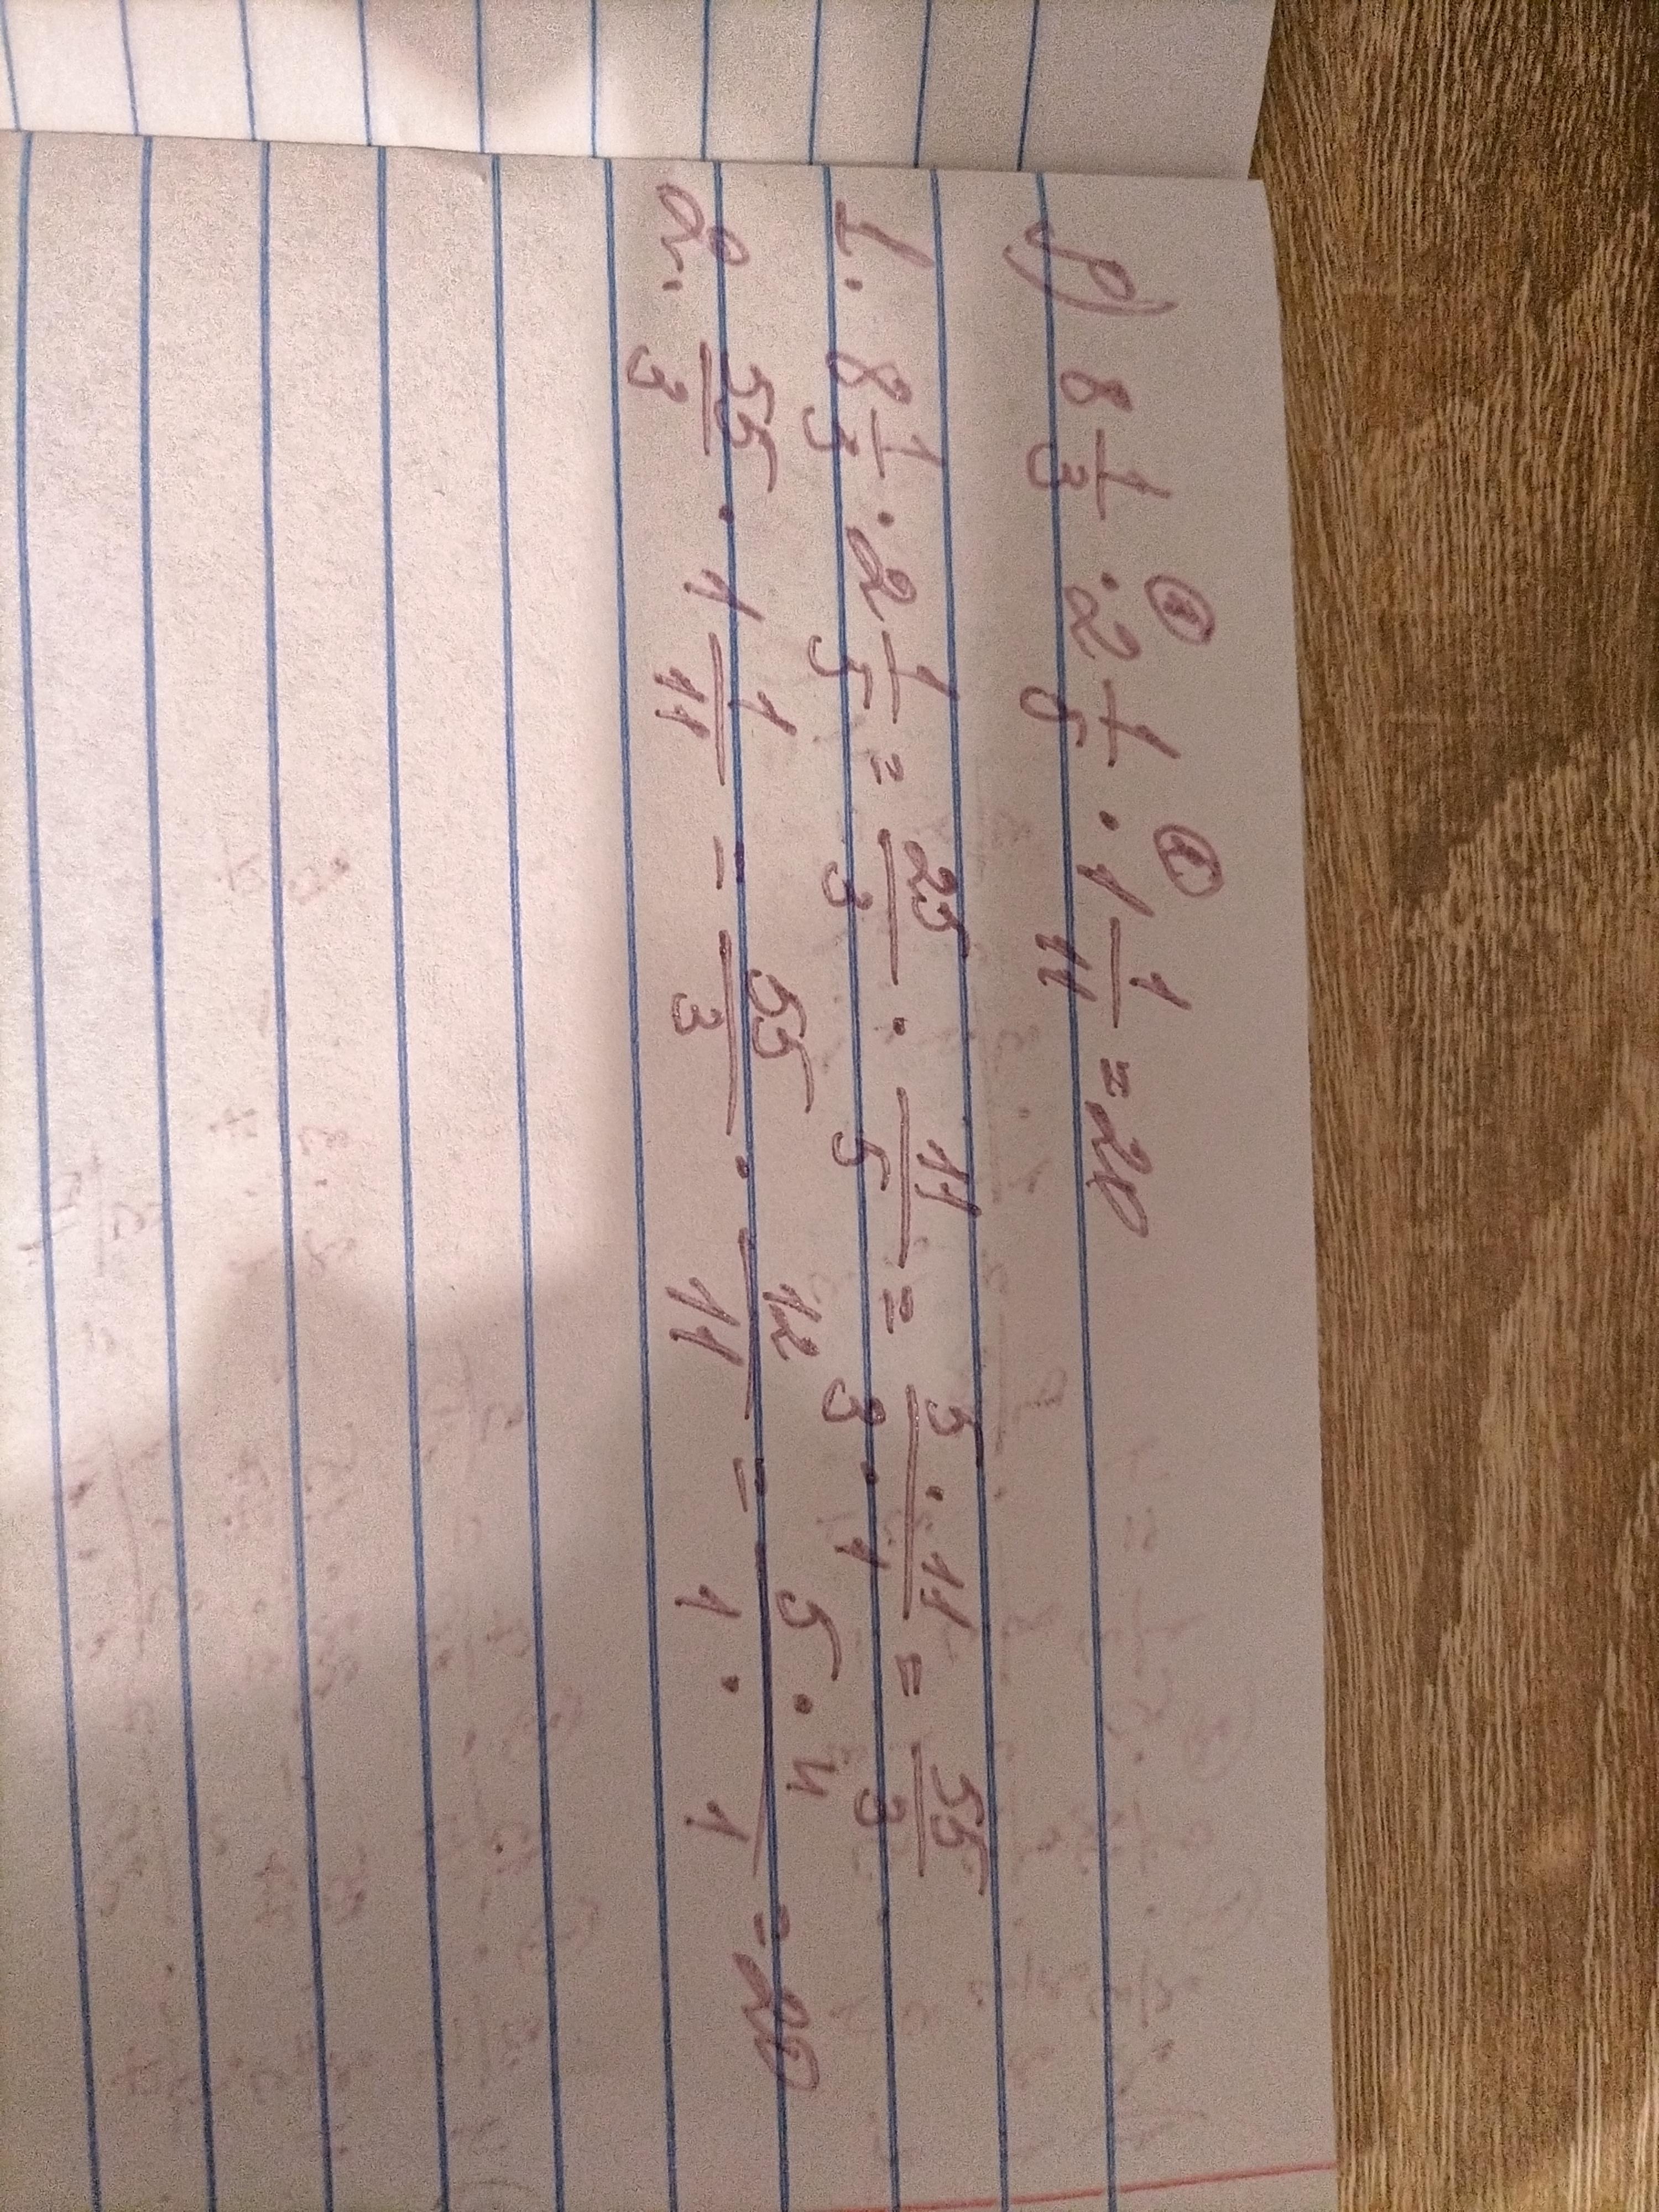 р) 8 1/3 · 2 1/5 · 1 1/11 = 20
1. 8 1/3 · 2 1/5 = 25/3 · 11/5 = 5 · 11/3 · 1 = 55/3
2. 55/3 · 1 1/11 = 55/3 · 12/11 = 5 · 4/1 · 1 = 20